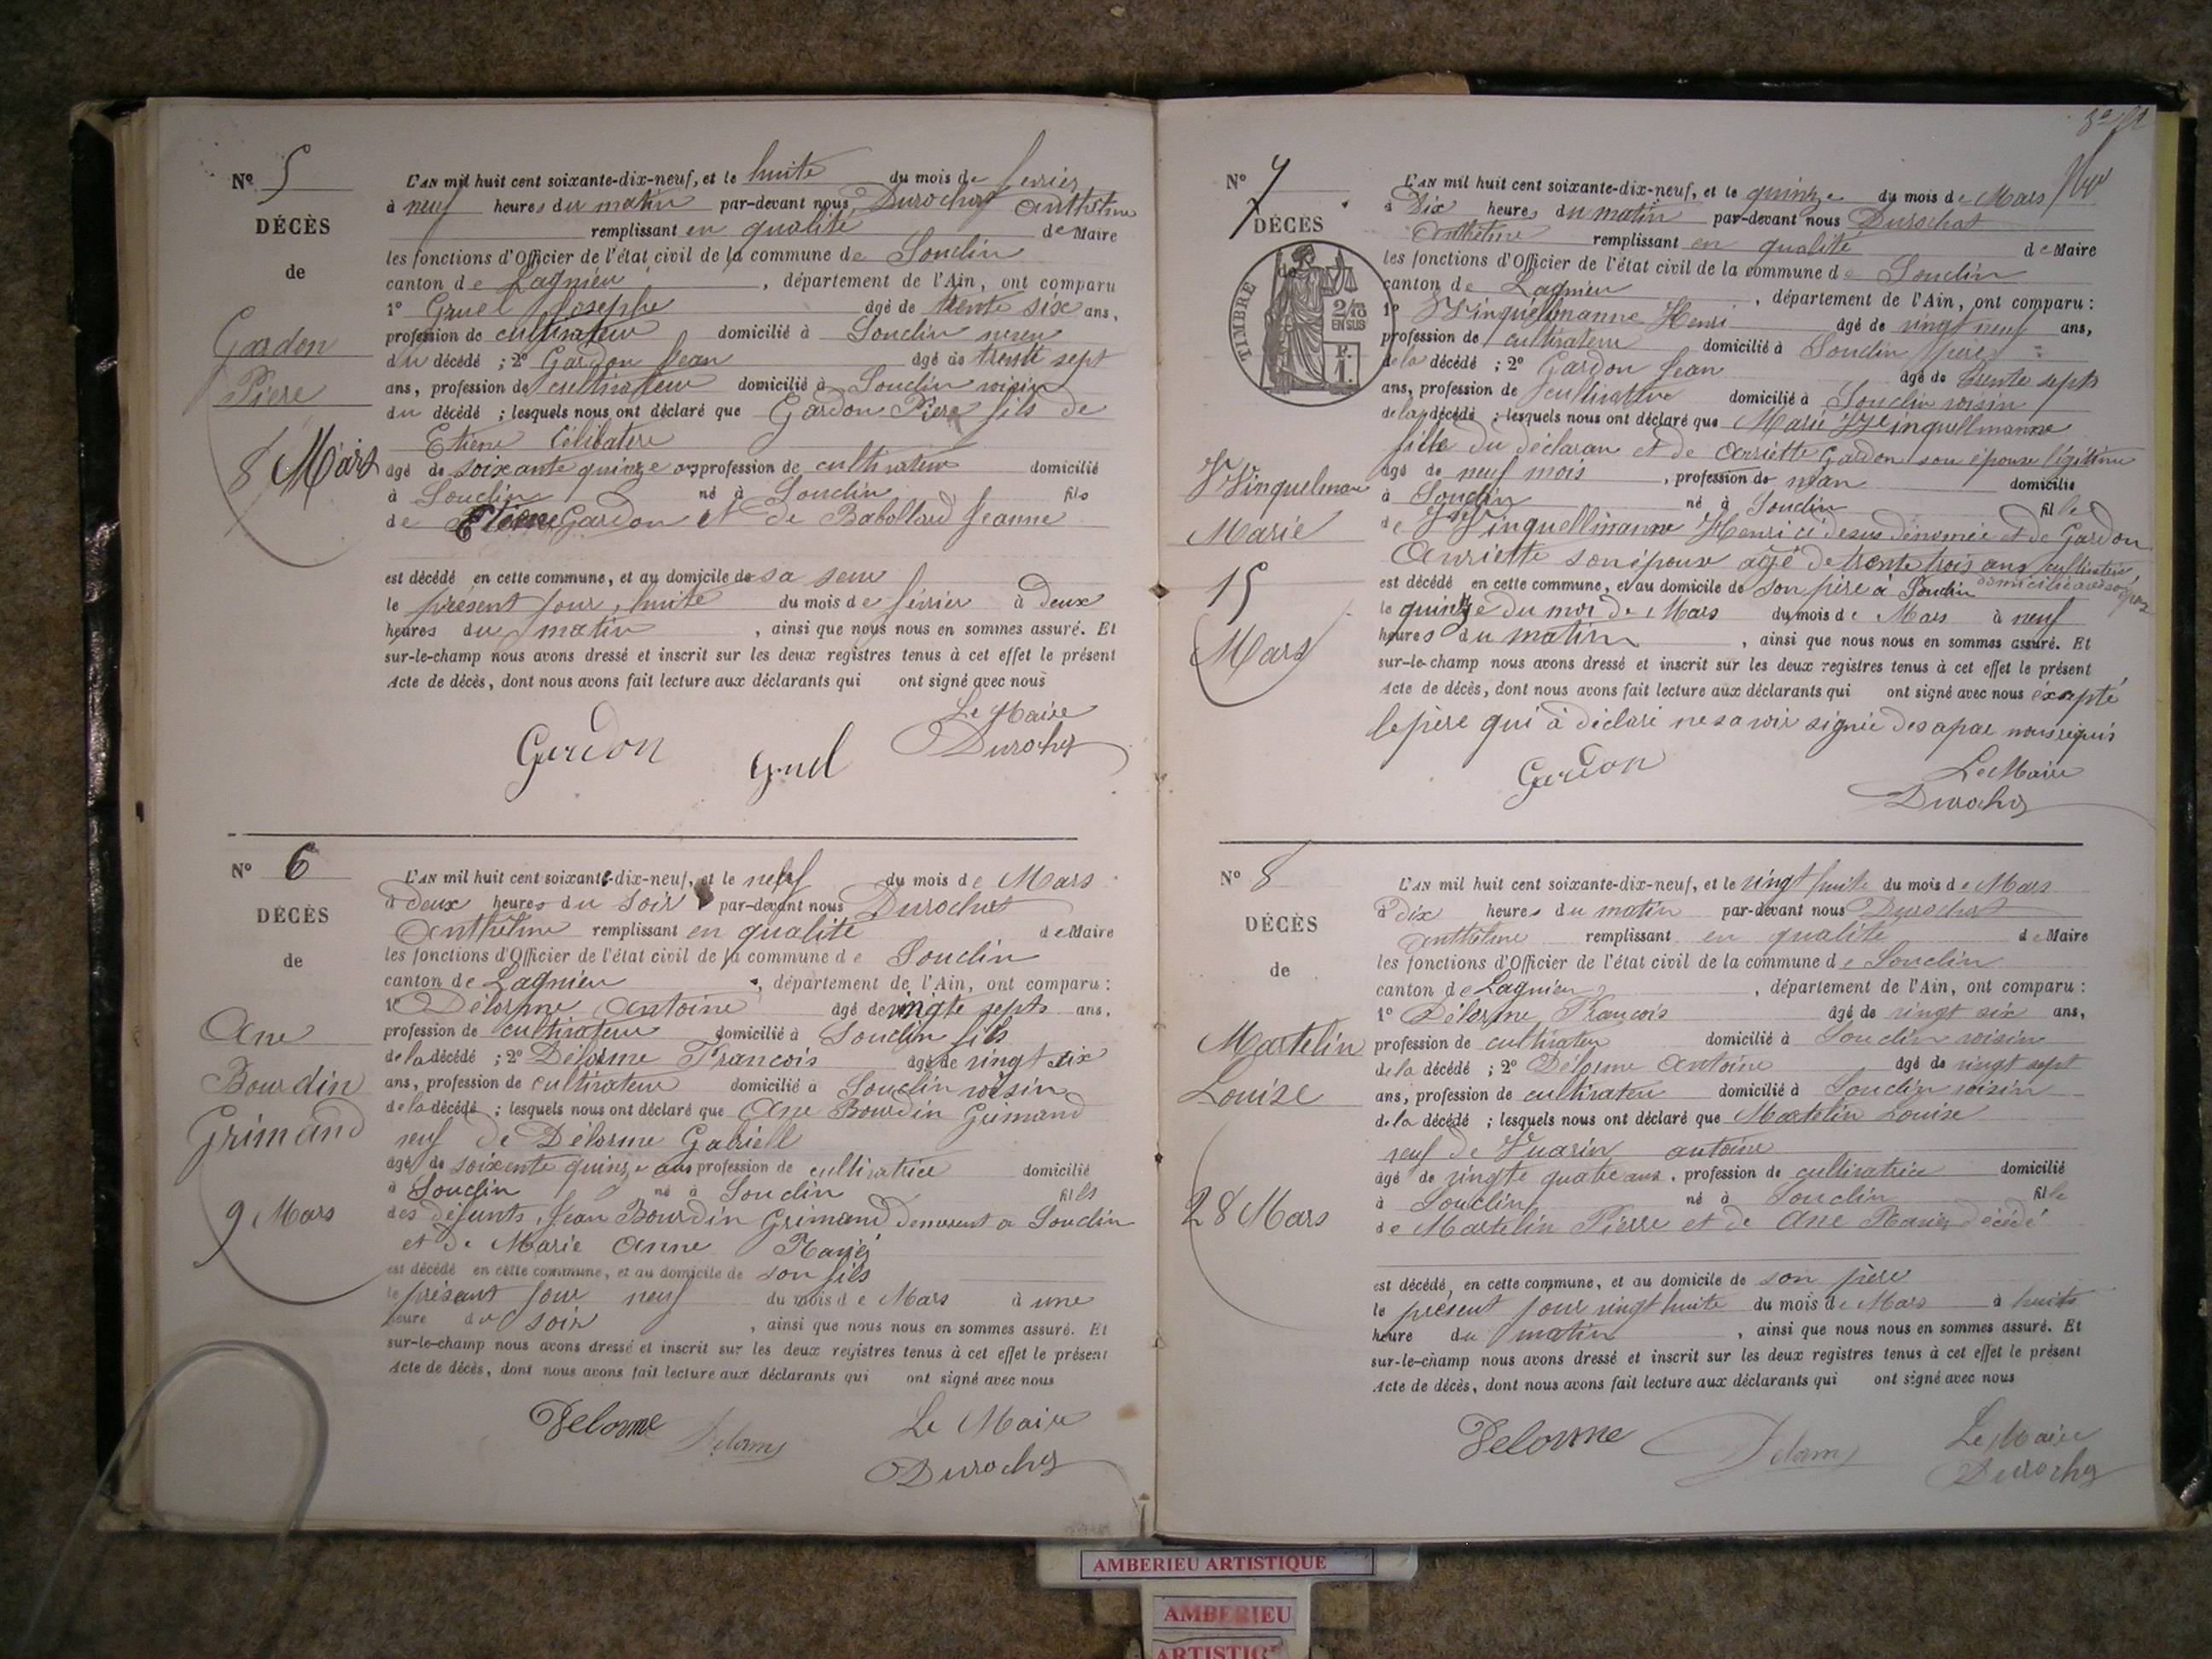 Nº 5
DÉCÈS
de
Gardon
Piere
8 Mars
L'AN mil huit cent soixante-dix-neuf, et le huite du mois de fevrier
à neuf heures du matin par-devant nous Durochat Anthelme
remplissant en qualité de Maire
les fonctions d'Officier de l'état civil de la commune de Souclin
canton de Lagnieu, département de l'Ain, ont comparu
1º Gruel Joseph âgé de trente six ans,
profession de cultivateur domicilié à Souclin neveu
du décédé ; 2º Gardon Jean âgé de trente sept
ans, profession de cultivateur domicilié à Souclin voisin
du décédé ; lesquels nous ont déclaré que Gardon Piere fils de
Etiene Célibatere
âgé de soixante quinze ans profession de cultivateur domicilié
à Souclin né à Souclin fils
de Etiene Gardon et de Babolland Jeanne
est décédé en cette commune, et au domicile de sa seur
le présent jour, huite du mois de février à deux
heures du matin, ainsi que nous nous en sommes assuré. Et
sur-le-champ nous avons dressé et inscrit sur les deux registres tenus à cet effet le présent
Acte de décès, dont nous avons fait lecture aux déclarants qui ont signé avec nous
Le Maire
Gardon Gruel Durochat
Nº 6
DÉCÈS
de
Ane
Bourdin
Grimand
9 Mars
L'AN mil huit cent soixante-dix-neuf, et le neuf du mois de Mars
à deux heures du soir par-devant nous Durochat
Anthelme remplissant en qualité de Maire
les fonctions d'Officier de l'état civil de la commune de Souclin
canton de Lagnieu, département de l'Ain, ont comparu :
1º Délorme Antoine âgé de vingte septs ans,
profession de cultivateur domicilié à Souclin fils
de la décédé ; 2º Délorme Francois âgé de vingt six
ans, profession de cultivateur domicilié à Souclin voisin
de la décédé ; lesquels nous ont déclaré que Ane Bourdin Grimand
veuf de Délorme Gabriell
âgé de soixente quinze ans profession de cultivatrice domicilié
à Souclin né à Souclin fils
des défunts, Jean Bourdin Grimand demeurent a Souclin
et de Marie Anne
est décédé en cette commune, et au domicile de son fils
le présant jour neuf du mois de Mars à une
heure du soir, ainsi que nous nous en sommes assuré. Et
sur-le-champ nous avons dressé et inscrit sur les deux registres tenus à cet effet le présent
Acte de décès, dont nous avons fait lecture aux déclarants qui ont signé avec nous
Delorme Delorme Le Maire
Durochat
Nº 7
DÉCÈS
de
TIMBRE
2/10
EN SUS
Winquelmane
Marie
15
Mars
L'AN mil huit cent soixante-dix-neuf, et le quinze du mois de Mars
à Dix heures du matin par-devant nous Durochat
Anthelme remplissant en qualité de Maire
les fonctions d'Officier de l'état civil de la commune de Souclin
canton de Lagnieu, département de l'Ain, ont comparu :
1º Winquellmanne Henri âgé de vingt neuf ans,
profession de cultivateur domicilié à Souclin père
de la décédé ; 2º Gardon Jean âgé de trente septs
ans, profession de cultivateur domicilié à Souclin voisin
de la décédé ; lesquels nous ont déclaré que Marie Winquellmanne
fille du déclaran et de Anriette Gardon son épouse légitime
âgé de neuf mois, profession de domicilié
à Souclin né à Souclin fille
de Winquellmanne Henri ci desus dénomée et de Gardon
Anriette son épouse agé de trente trois ans cultivatrice
domiciliée avec son épou
est décédé en cette commune, et au domicile de son père à Souclin
le quinze du moi de Mars du mois de Mars à neuf
heures du matin, ainsi que nous nous en sommes assuré. Et
sur-le-champ nous avons dressé et inscrit sur les deux registres tenus à cet effet le présent
Acte de décès, dont nous avons fait lecture aux déclarants qui ont signé avec nous éxcepté
le père qui à déclaré ne savoir signée de sa par nous requis
Gardon Le Maire
Durochat
Nº 8
DÉCÈS
de
Martelin
Louise
28 Mars
L'AN mil huit cent soixante-dix-neuf, et le vingt huite du mois de Mars
à dix heures du matin par-devant nous Durochat
Anthelme remplissant en qualité de Maire
les fonctions d'Officier de l'état civil de la commune de Souclin
canton de Lagnieu, département de l'Ain, ont comparu :
1º Délorme Francois âgé de vingt six ans,
profession de cultivateur domicilié à Souclin voisin
de la décédé ; 2º Délorme Antoine âgé de vingt sept
ans, profession de cultivateur domicilié à Souclin voisin
de la décédé ; lesquels nous ont déclaré que Martelin Louise
veuf de Vuarin antoine
âgé de vingte quatre ans, profession de cultivatrice domicilié
à Souclin né à Souclin fille
de Martelin Pierre et de Ane décédé
est décédé en cette commune, et au domicile de son père
le present jour vingt huite du mois de Mars à huits
heure du matin, ainsi que nous nous en sommes assuré. Et
sur-le-champ nous avons dressé et inscrit sur les deux registres tenus à cet effet le présent
Acte de décès, dont nous avons fait lecture aux déclarants qui ont signé avec nous
Delorme Delorme Le Maire
Durochat
AMBERIEU ARTISTIQUE
AMBERIEU
ARTISTIQ